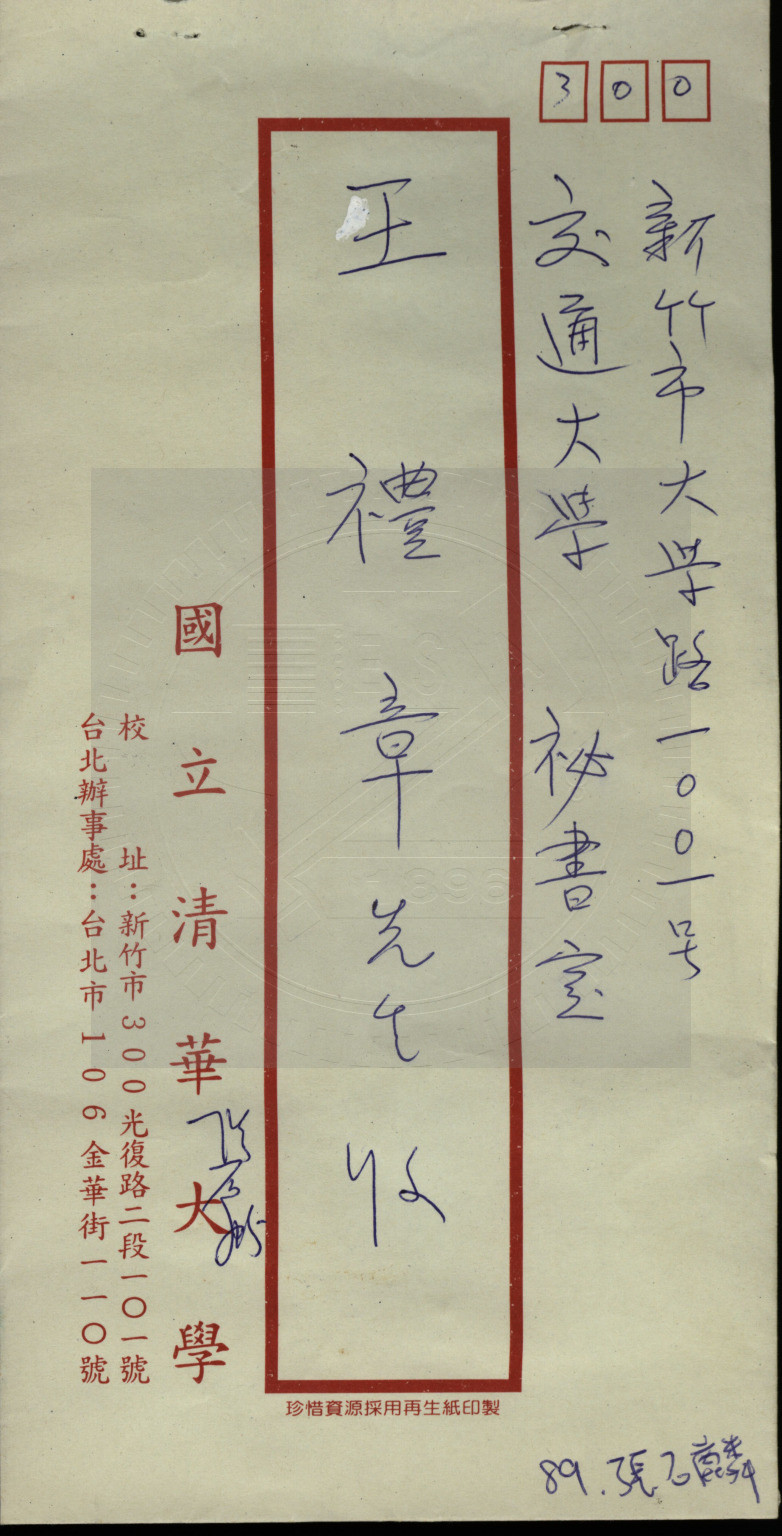 300
新竹市大学路一00一号
交通大學 祕書室
王禮章先生 收
國立清華大學
張石麟
校 址：新竹市300光復路二段一〇一號
台北辦事處：台北市106金華街一一〇號
珍惜資源採用再生紙印製
89.張石麟
1896